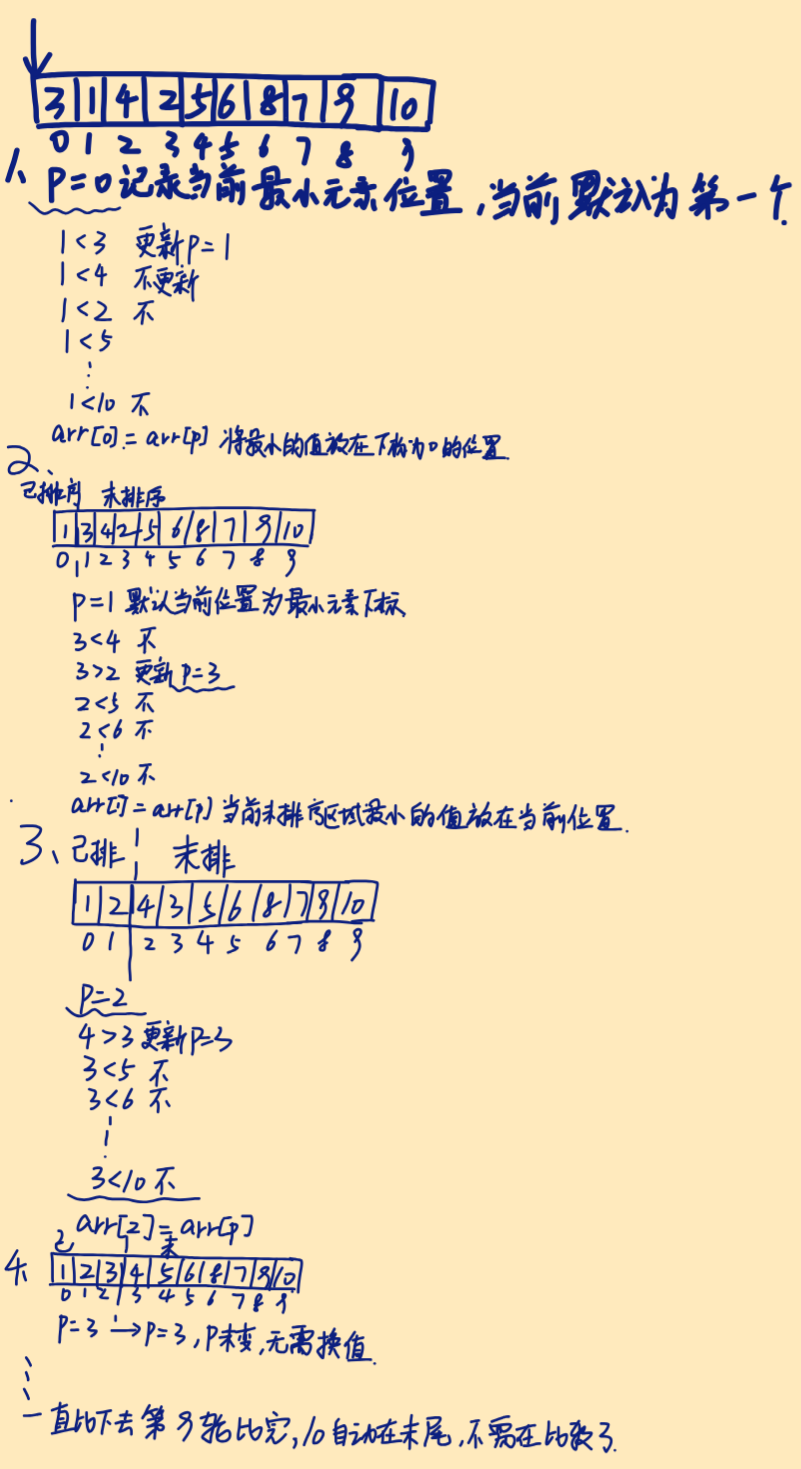 3 1 4 2 5 6 8 7 9 10
0 1 2 3 4 5 6 7 8 9
1、P=0 记录当前最小元素位置,当前默认为第一个.
1<3 更新P=1
1<4 不更新
1<2 不
1<5
⋮
1<10 不
arr[0]=arr[p] 将最小的值放在下标为0的位置.
2、
已排序 未排序
1 3 4 2 5 6 8 7 9 10
0 1 2 3 4 5 6 7 8 9
P=1 默认当前位置为最小元素下标,
3<4 不
3>2 更新P=3
2<5 不
2<6 不
⋮
2<10 不
arr[1]=arr[p] 当前未排序区域最小的值放在当前位置.
3、已排 未排
1 2 4 3 5 6 8 7 9 10
0 1 2 3 4 5 6 7 8 9
P=2
4>3 更新P=3
3<5 不
3<6 不
⋮
3<10 不
arr[2]=arr[p]
已 未
4、1 2 3 4 5 6 8 7 9 10
0 1 2 3 4 5 6 7 8 9
P=3 →P=3,P未变,无需换值.
⋮
一直比下去第9轮比完,10自动在末尾,不需在比较了.